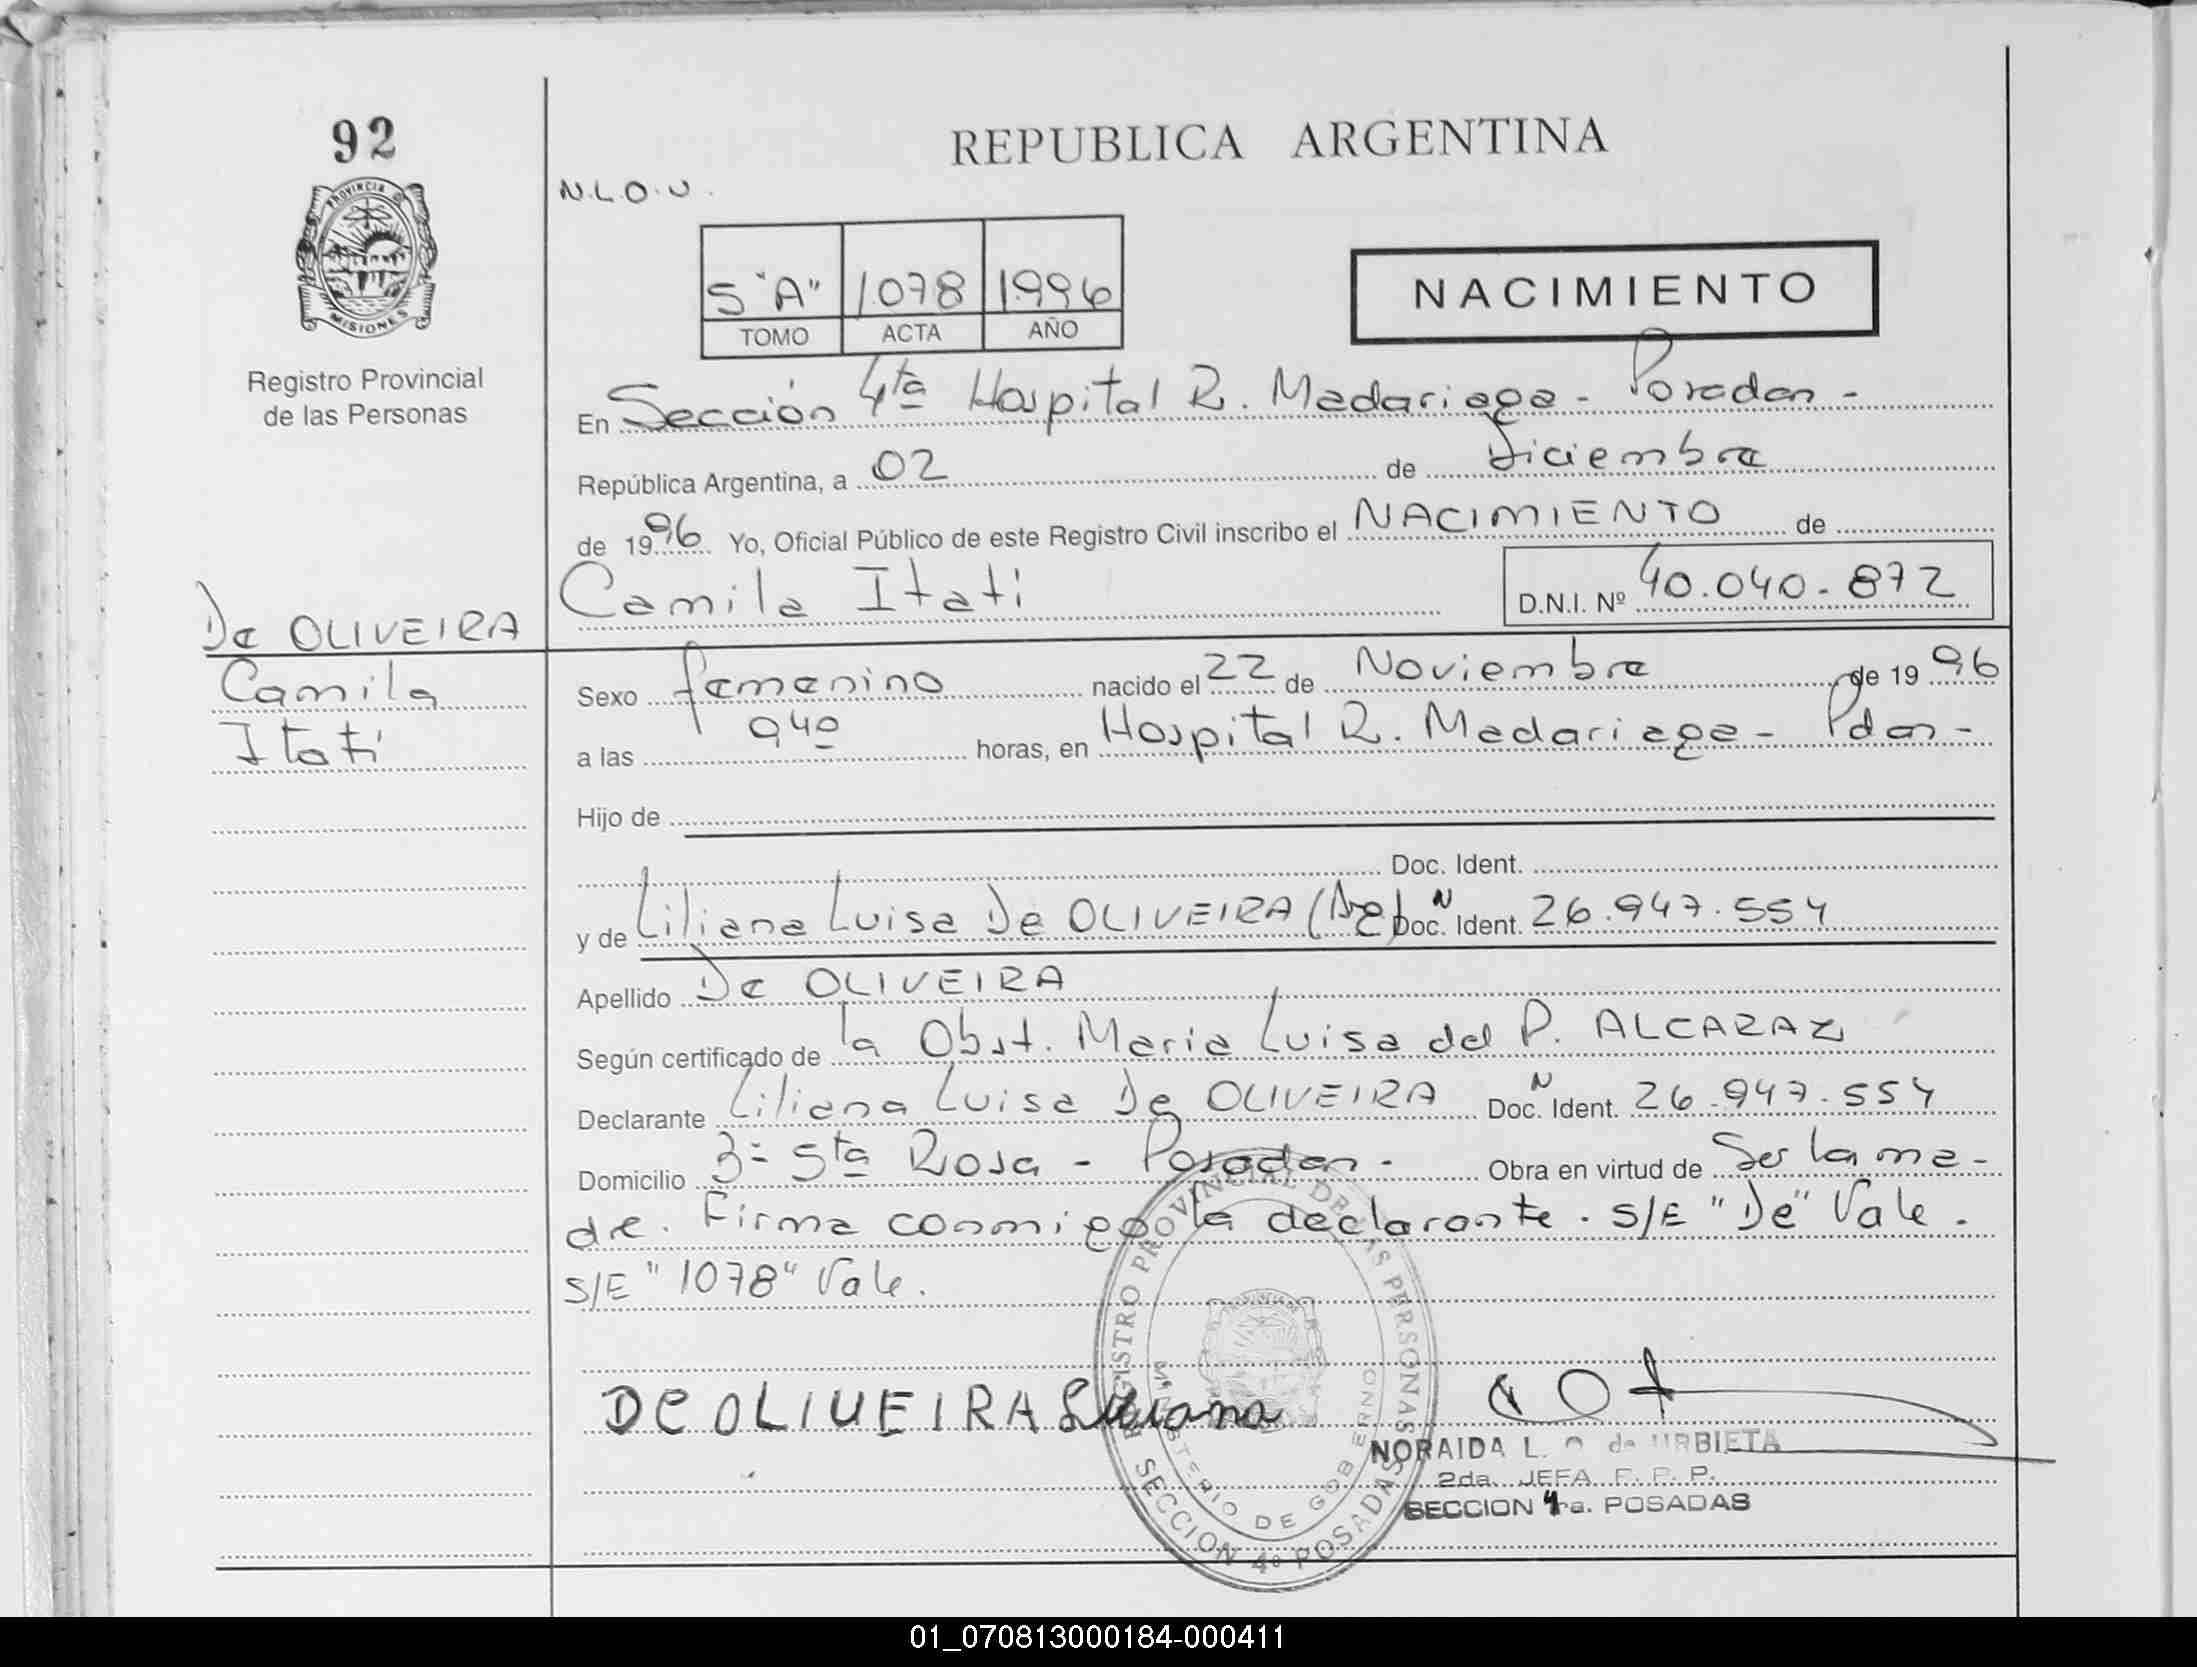 92
PROVINCIA DE
MISIONES
Registro Provincial
de las Personas
REPUBLICA ARGENTINA
N.L.O.U.
5 "A" 1078 1996
TOMO ACTA AÑO
NACIMIENTO
En Sección 4ta Hospital R. Madariaga - Posadas -
República Argentina, a 02 de Diciembre
de 1996 Yo, Oficial Público de este Registro Civil inscribo el NACIMIENTO de
Camila Itati D.N.I. Nº 40.040.872
De OLIVEIRA
Camila
Itati
Sexo femenino nacido el 22 de Noviembre de 1996
a las 940 horas, en Hospital R. Madariaga - Pdas -
Hijo de
Doc. Ident.
y de Liliana Luisa De OLIVEIRA (Arg) Doc. N Ident. 26.947.554
Apellido De OLIVEIRA
Según certificado de la Obst. Maria Luisa del P. ALCARAZ
Declarante Liliana Luisa De OLIVEIRA Doc. N Ident. 26.947.554
Domicilio B= Sta Rosa - Posadas - Obra en virtud de Ser la ma-
dre. Firma conmigo la declarante. S/E "De" Vale.
S/E "1078" Vale.
De OLIVEIRA Liliana
REGISTRO PROVINCIAL DE LAS PERSONAS
MINISTERIO DE GOBIERNO
SECCION 4º POSADAS
NORAIDA L. O. de URBIETA
2da. JEFA F. P. P.
SECCION 4ra. POSADAS
01_070813000184-000411